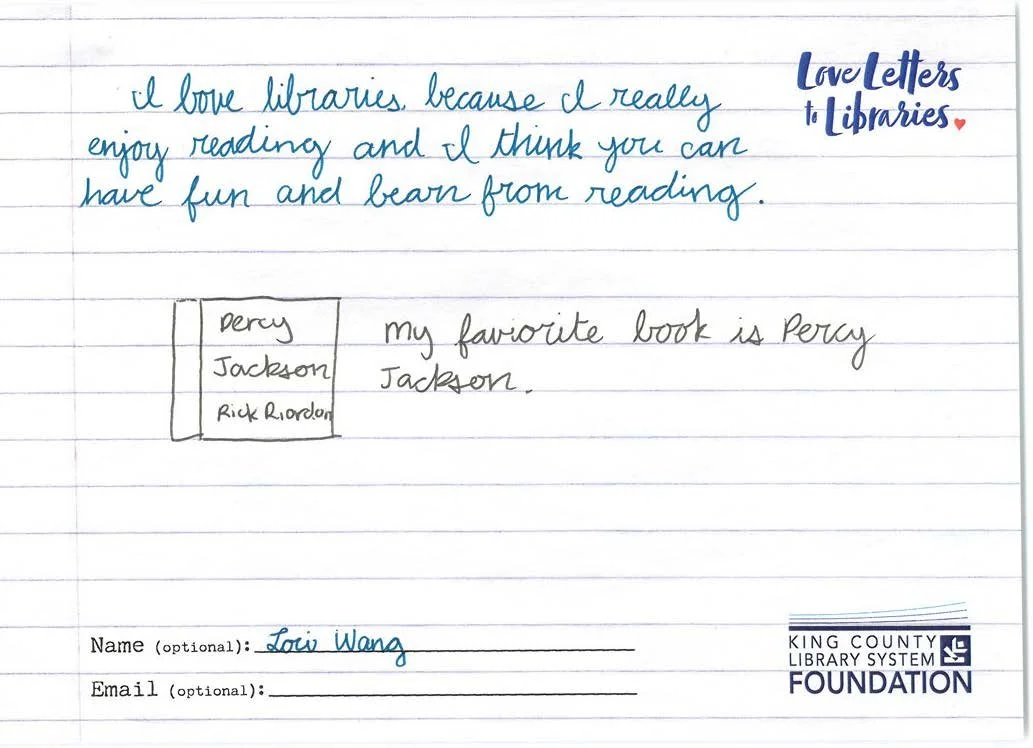 Love Letters
to Libraries
I love libraries, because I really
enjoy reading and I think you can
have fun and learn from reading.
Percy
Jackson
Rick Riordan
my faviorite book is Percy
Jackson.
Name (optional): Lori Wang
Email (optional):
KING COUNTY
LIBRARY SYSTEM
FOUNDATION